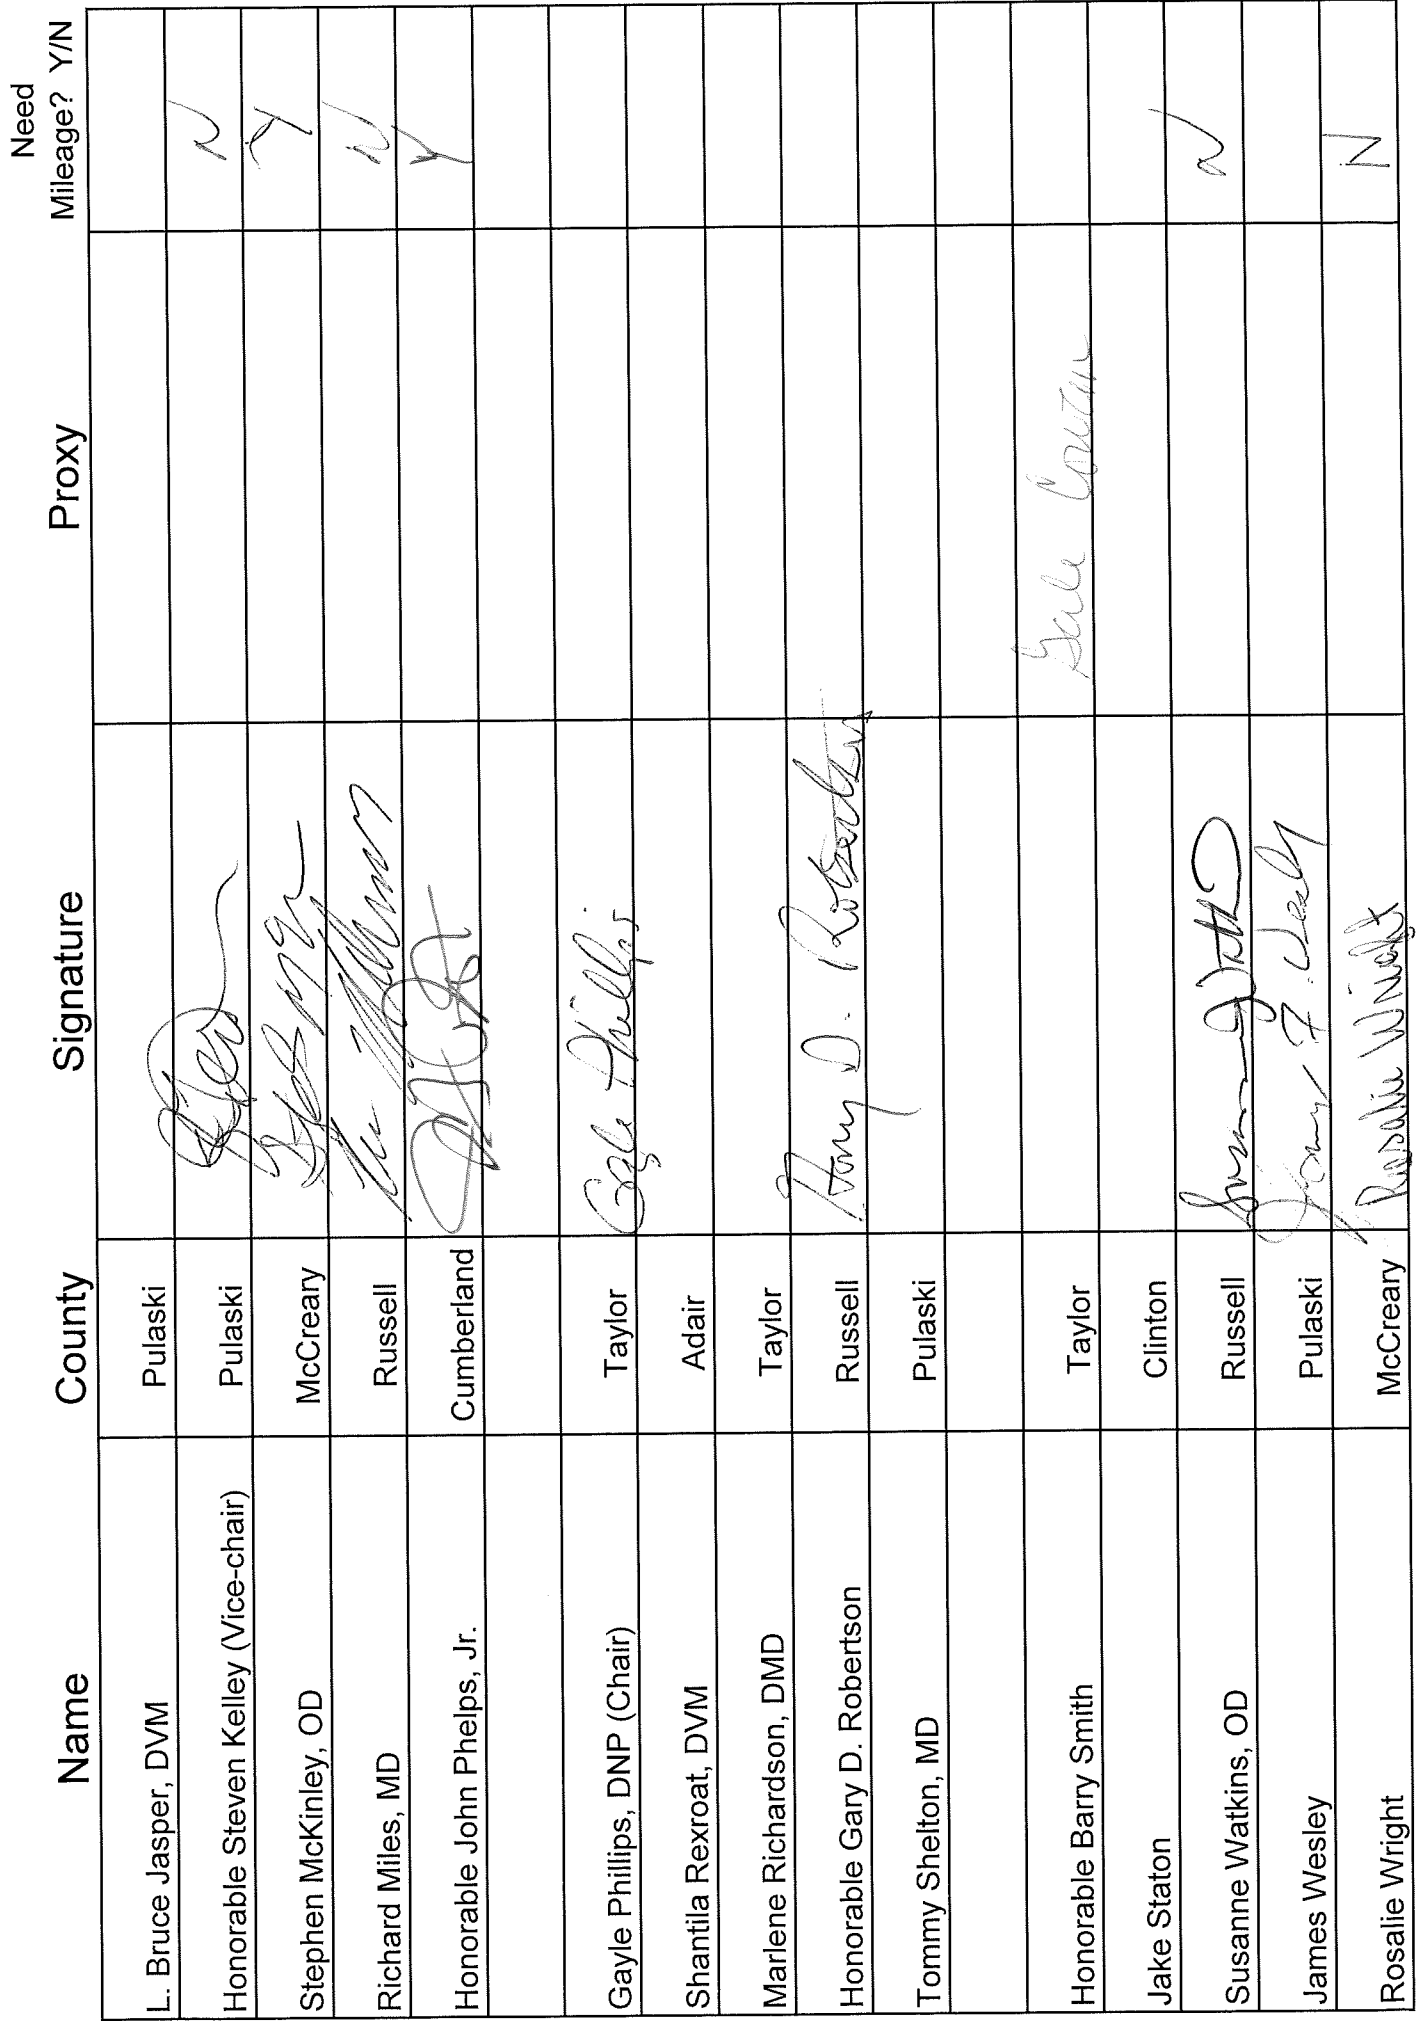 Name County Signature Proxy Need Mileage? Y/N
L. Bruce Jasper, DVM Pulaski
Honorable Steven Kelley (Vice-chair) Pulaski N
Stephen McKinley, OD McCreary Y
Richard Miles, MD Russell N
Honorable John Phelps, Jr. Cumberland Y
Gayle Phillips, DNP (Chair) Taylor Gayle Phillips
Shantila Rexroat, DVM Adair
Marlene Richardson, DMD Taylor
Honorable Gary D. Robertson Russell Gary D. Robertson
Tommy Shelton, MD Pulaski
Honorable Barry Smith Taylor Gale Cowan
Jake Staton Clinton
Susanne Watkins, OD Russell N
James Wesley Pulaski James F. Wesley
Rosalie Wright McCreary Rosalie Wright N